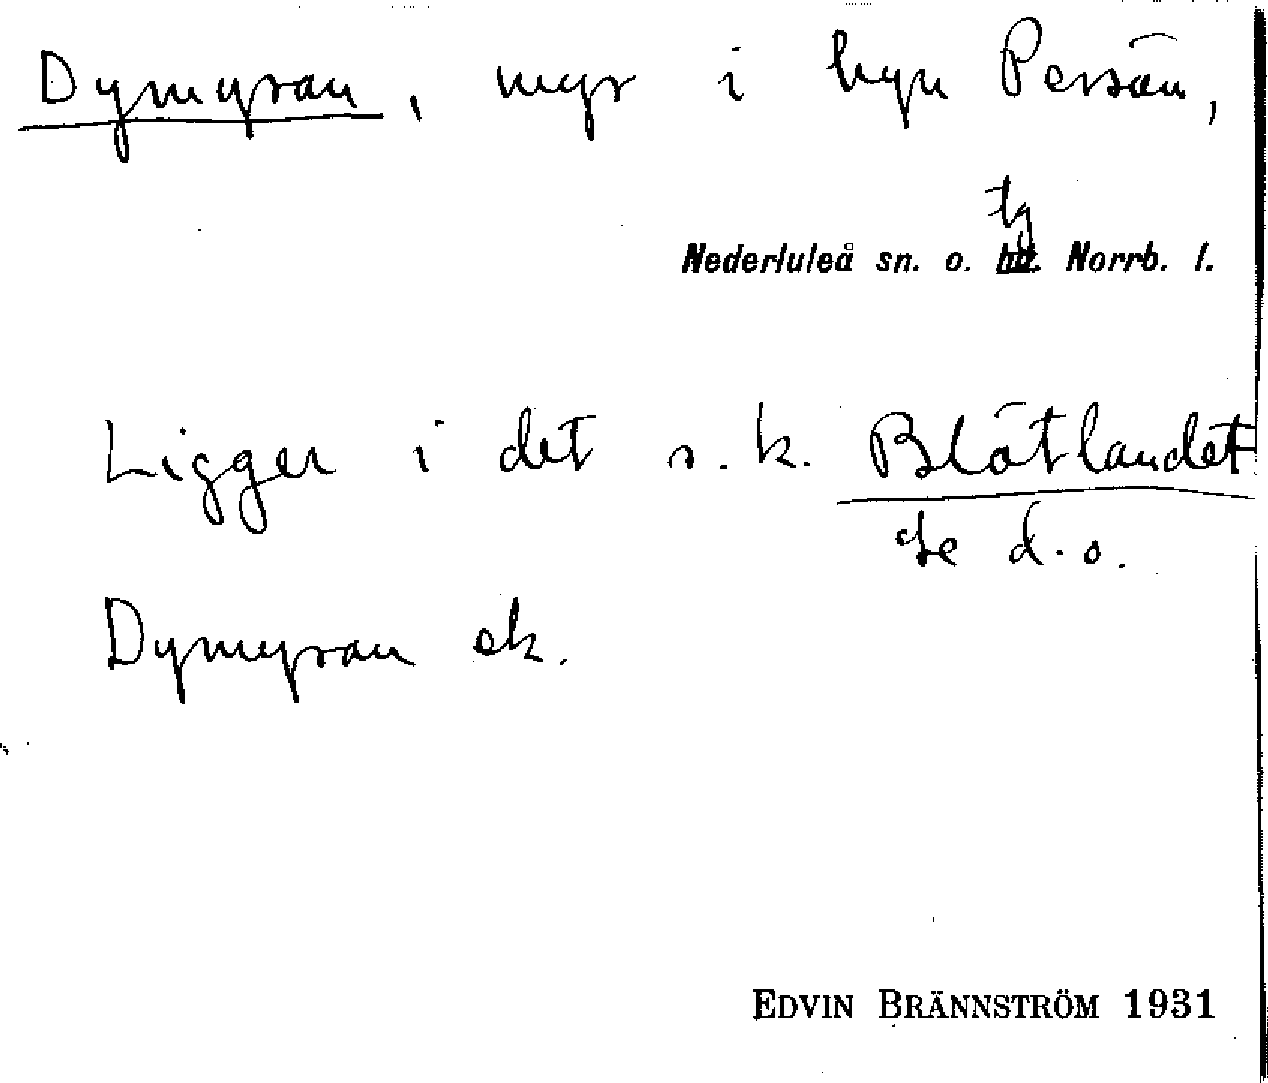 Dymyran, myr i byn Persön,
tg
Nederluleå sn. o. hd. Norrb. l.
Ligger i det s.k. Blötlandet
Se d.o.
Dymyran ek.
EDVIN BRÄNNSTRÖM 1931